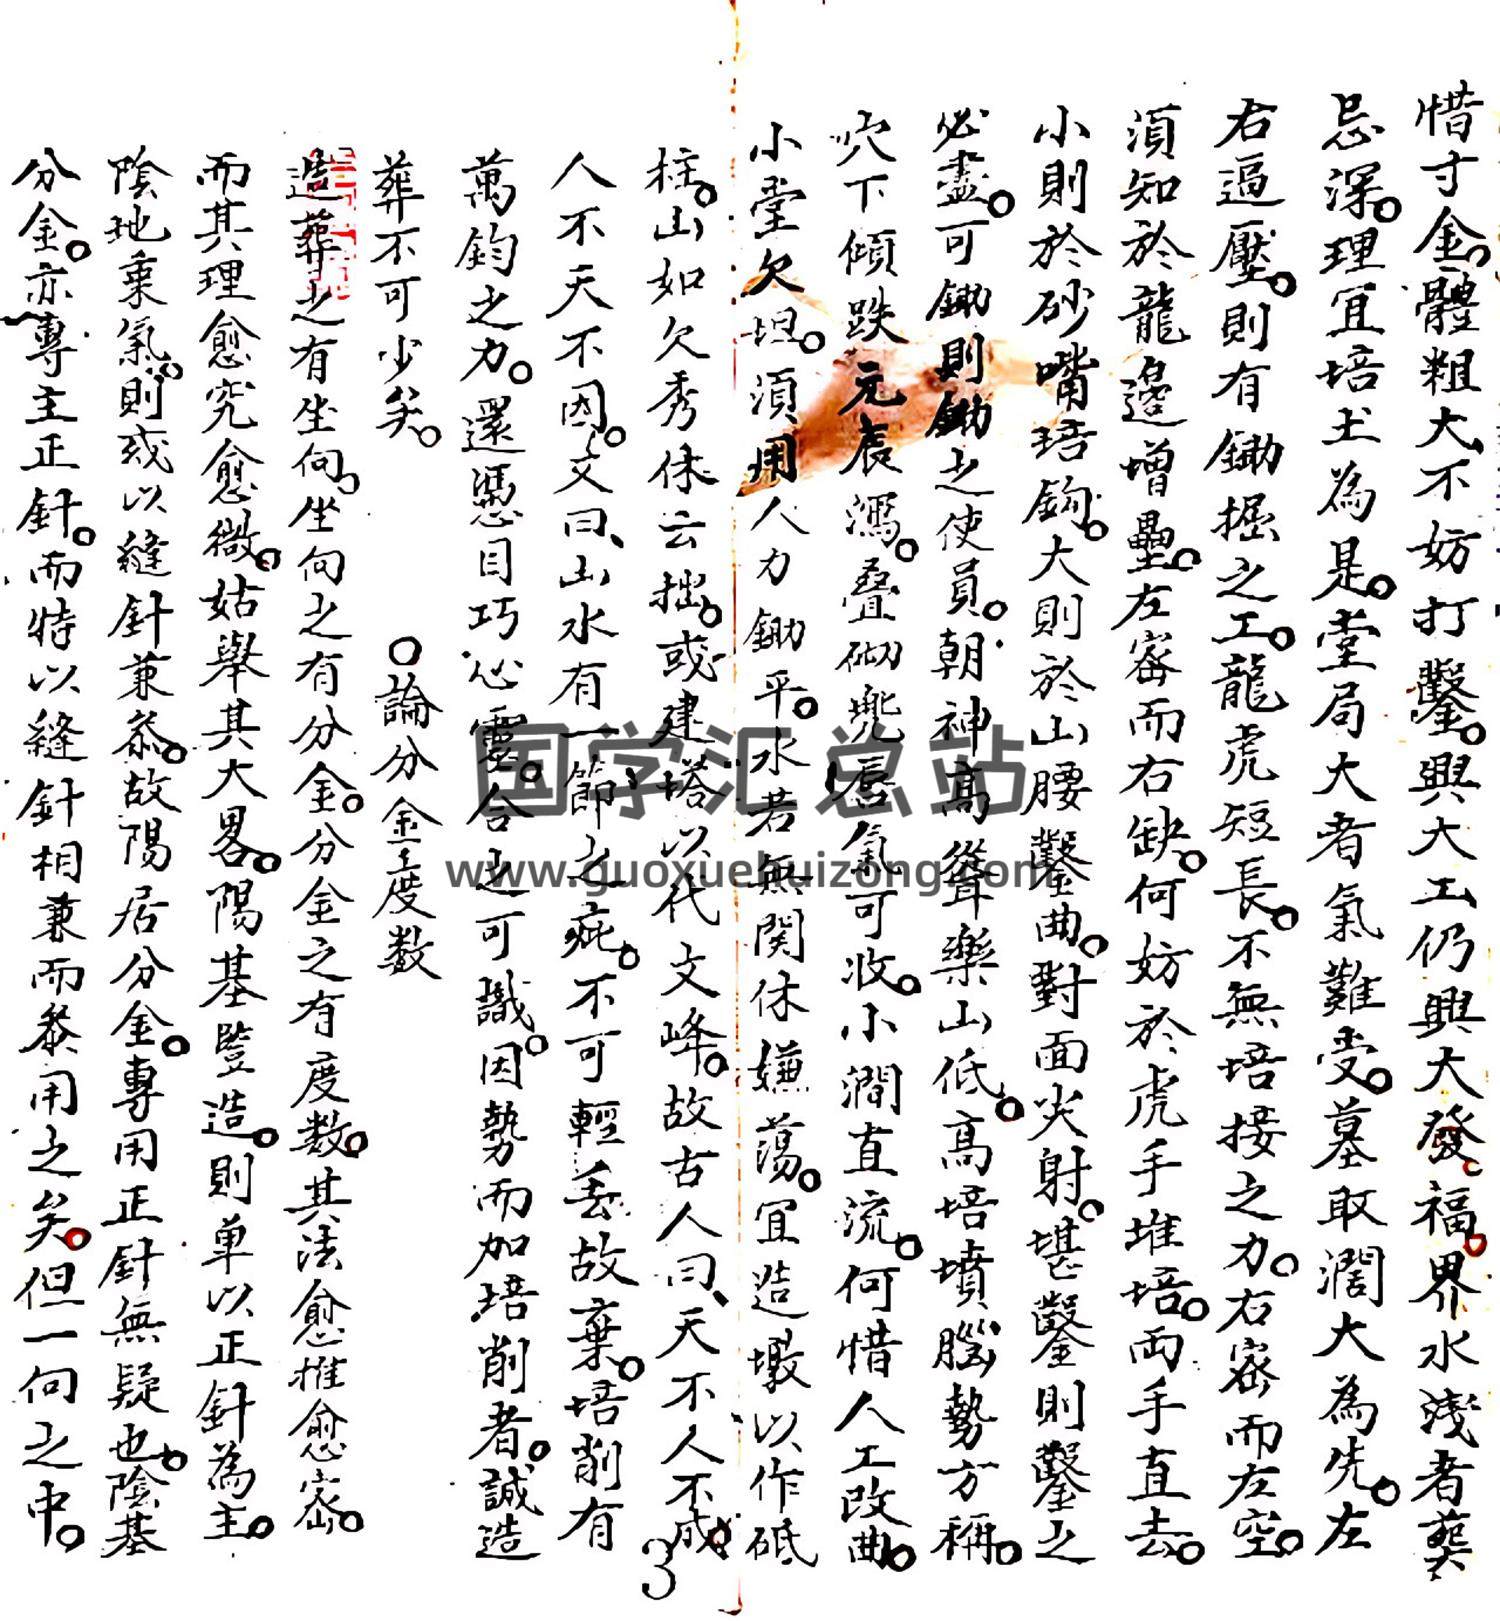 惜寸金。體粗大不妨打鑿。興大工仍興大發福。界水淺者葬
忌深。理宜培土為是。堂局大者氣難受。墓取濶大為先。左
右逼壓。則有鋤掘之工。龍虎短長。不無培接之力。右密而左空。
須知於龍邊增壘。左密而右缺。何妨於虎手堆培。兩手直去。
小則於砂嘴培鈎。大則於山腰鑿曲。對面尖射。堪鑿則鑿之
必盡。可鋤則鋤之使員。朝神高聳樂山低。高培墳腦勢方稱。
穴下傾跌元辰瀉。疊砌兠唇氣可收。小澗直流。何惜人工改曲。
小堂欠坦。須用人力鋤平。水若無関休嫌蕩。宜造墩以作砥
柱。山如欠秀休云拙。或建塔以代文峰。故古人曰、天不人不成
人不天不因。文曰、山水有一節之疵。不可輕丢故棄。培削有
萬鈞之力。還憑目巧心靈。合之可識。因勢而加培削者。誠造
葬不可少矣。
○論分金度数
造葬之有坐向。坐向之有分金。分金之有度数。其法愈推愈密。
而其理愈究愈微。姑舉其大畧。陽基豎造。則单以正針為主。
陰地乗氣。則或以縫針兼叅。故陽居分金。專用正針無疑也。陰基
分金。亦專主正針。而特以縫針相兼而叅用之矣。但一向之中。
3
国学汇总站
www.guoxuehuizong.com